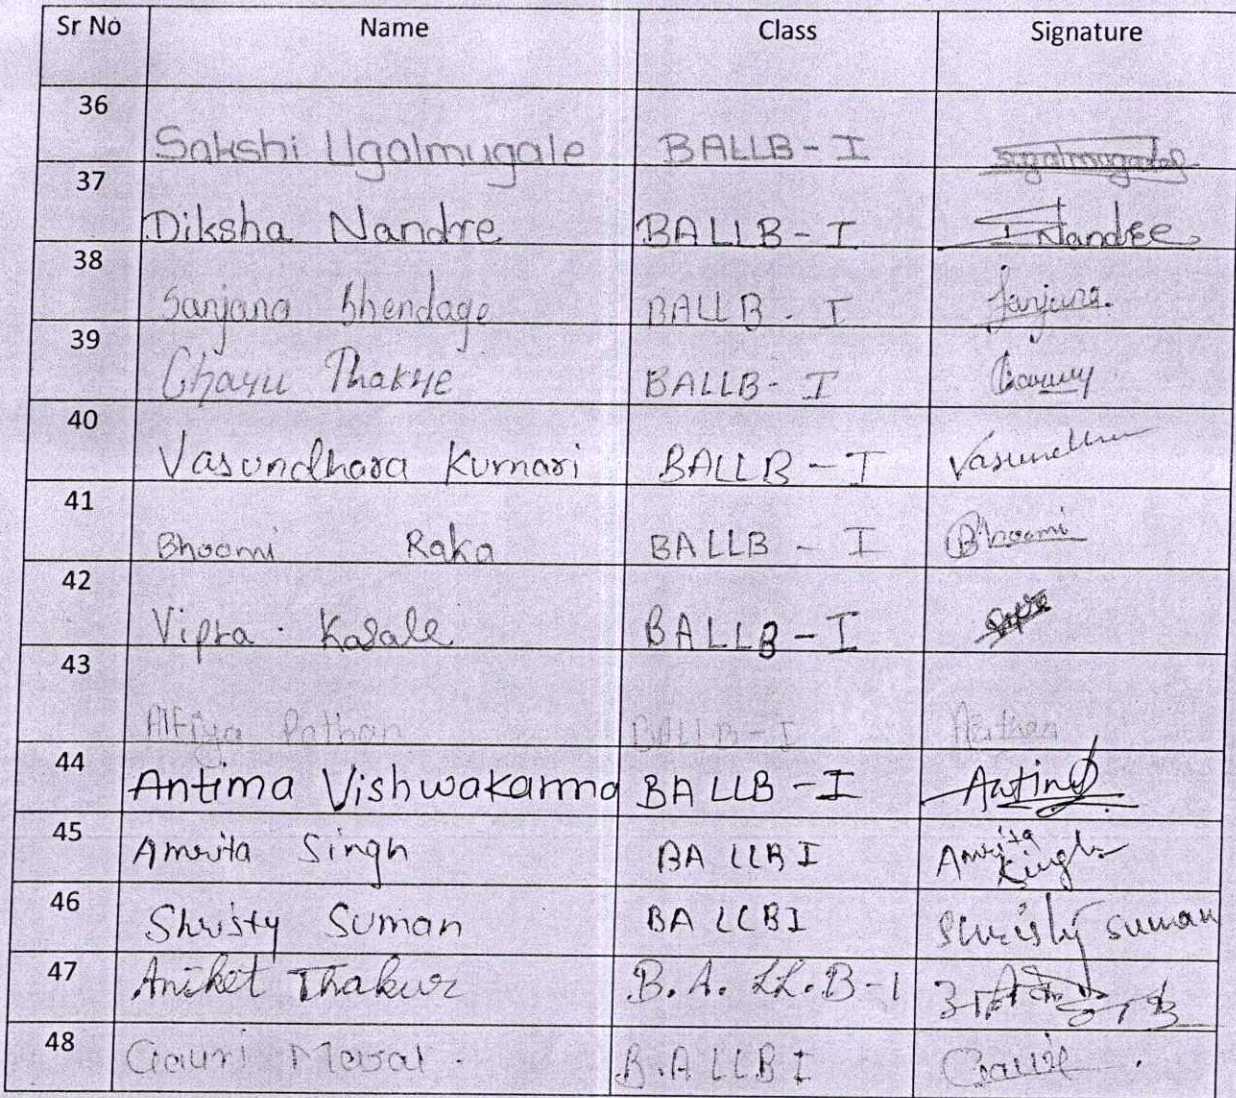 Sr No Name Class Signature
36 Sakshi Ugalmugale BALLB - I
37 Diksha Nandre BALLB - I Nandre
38 Sanjana Bhendage BALLB - I Sanjana.
39 Chayu Thakre BALLB - I
40 Vasundhara Kumari BALLB - I Vasundhra
41 Bhoomi Raka BALLB - I Bhoomi
42 Vipra Kasale BALLB - I
43 Alfiya Pathan BALLB - I APathan
44 Antima Vishwakarma BA LLB - I Antima
45 Amrita Singh BA LLB I Amrita Singh
46 Shristy Suman BA LLB I Shristy Suman
47 Aniket Thakur B.A. LL.B - 1
48 Gauri B.A LLB I Gauri